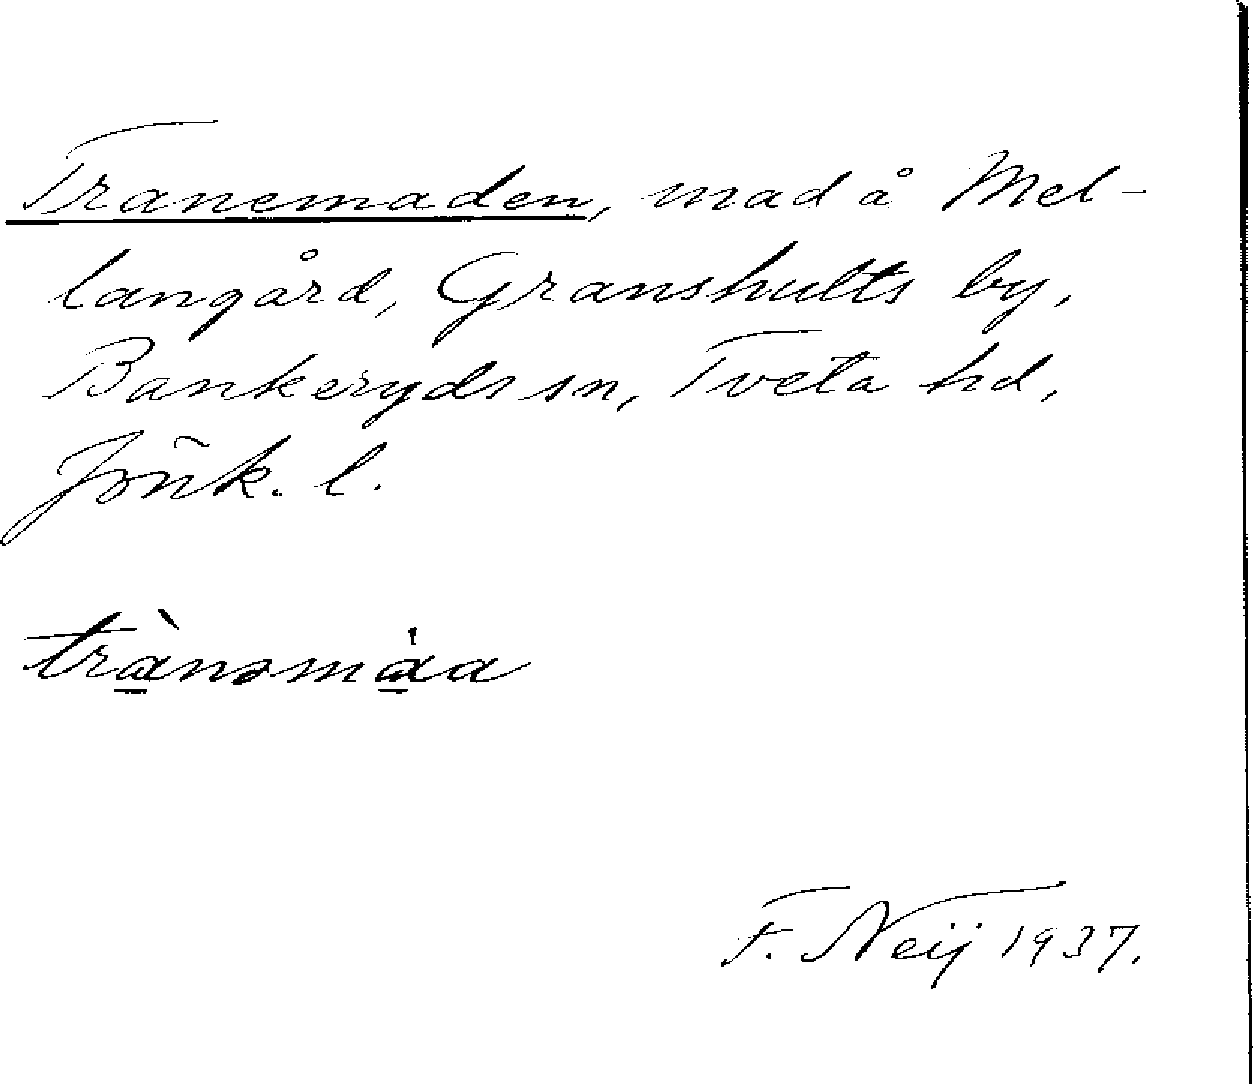 Tranemaden, mad å Mel-
langård, Granshults by,
Bankeryds sn, Tveta hd,
Jönk. l.
trὰ̠nəmά̠a
F. Neij 1937.